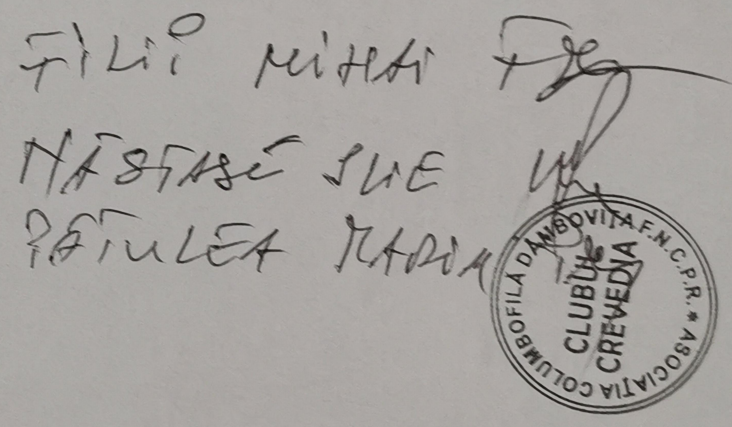 FILIP MIHAI
NĂSTASĂ ILIE
PĂTULEA MARIN
ASOCIAȚIA COLUMBOFILĂ DÂMBOVIȚA F.N.C.P.R. *
CLUBUL
CREVEDIA